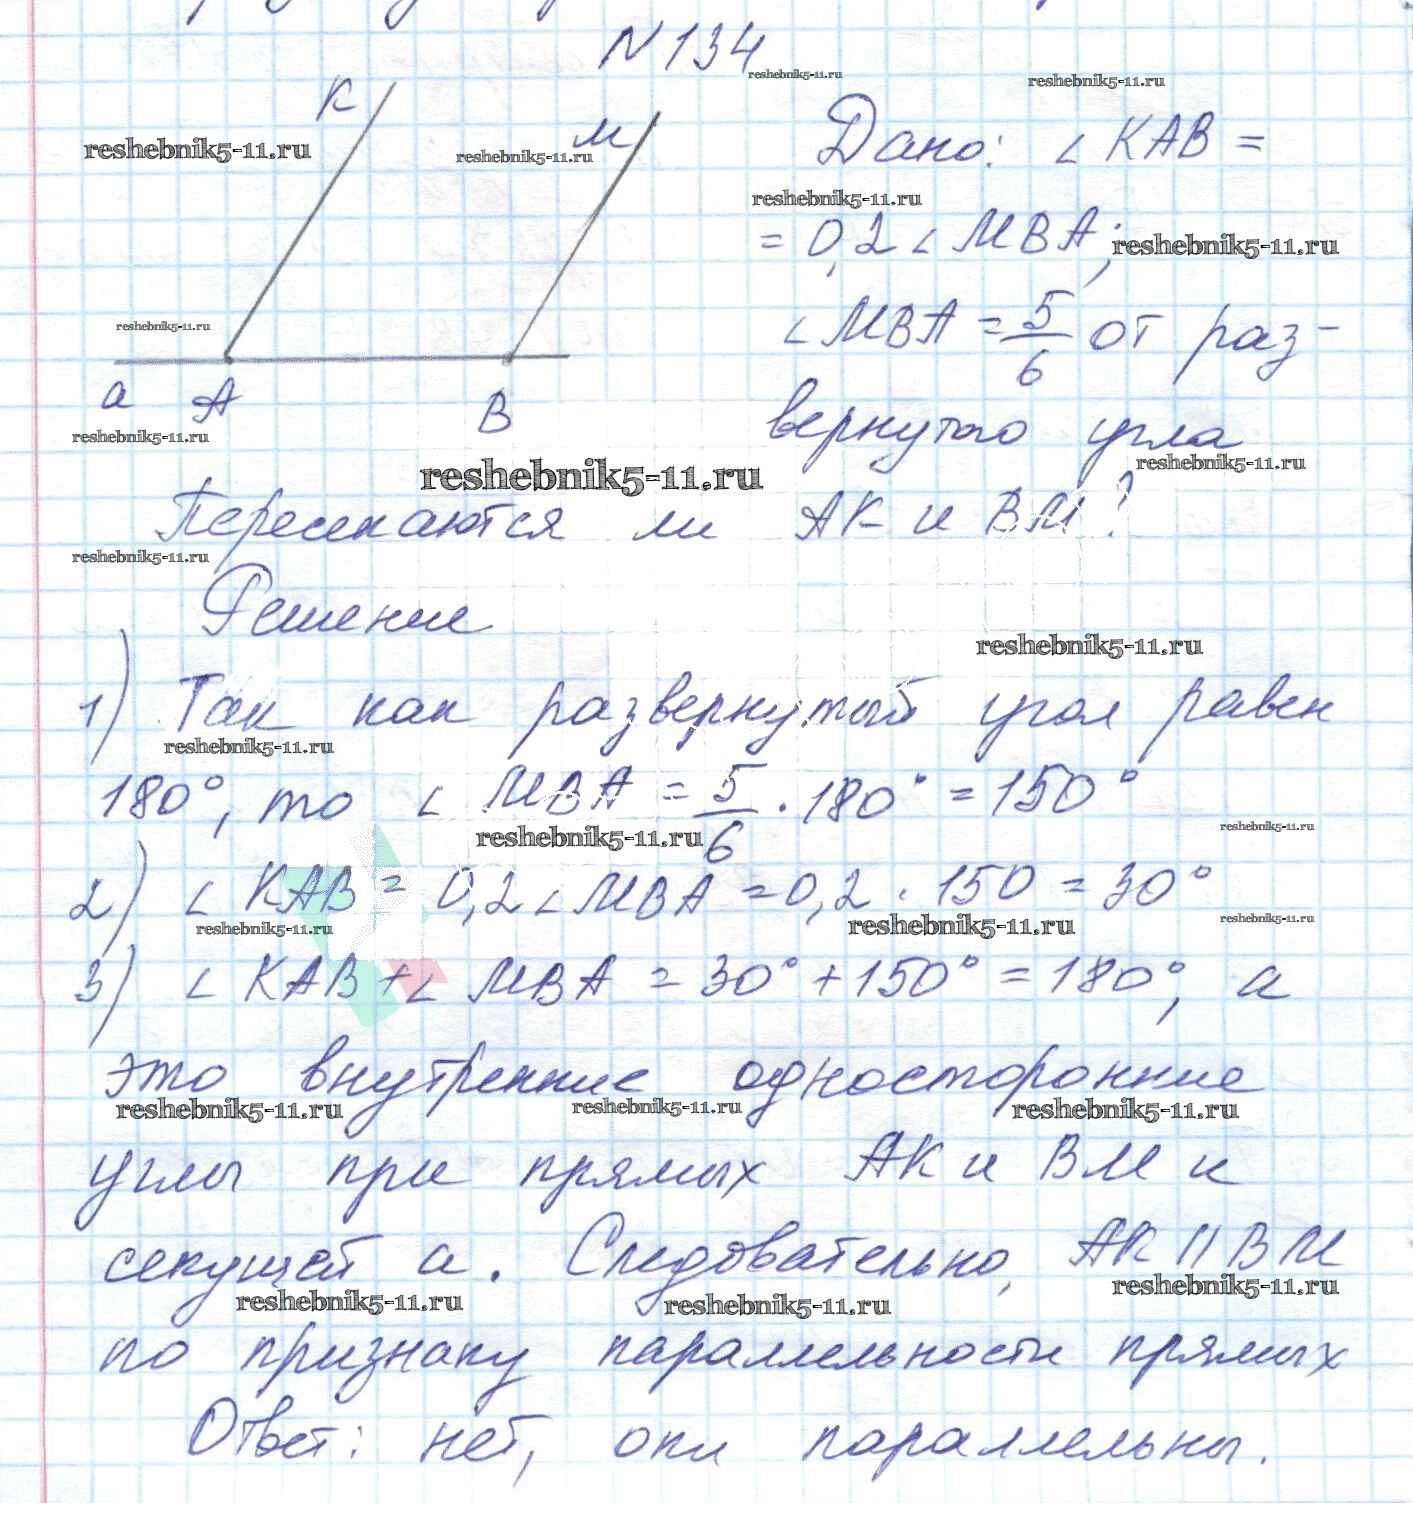 N 134
reshebnik5-11.ru
reshebnik5-11.ru
К
м
reshebnik5-11.ru
reshebnik5-11.ru
Дано: ∠ КАВ =
reshebnik5-11.ru
= 0,2 ∠ МВА;
reshebnik5-11.ru
∠ МВА = 5/6 от раз-
reshebnik5-11.ru
а А В
reshebnik5-11.ru
вернутого угла
reshebnik5-11.ru
reshebnik5-11.ru
Пересекаются ли АК и ВМ?
reshebnik5-11.ru
Решение
reshebnik5-11.ru
1) Так как развернутый угол равен
reshebnik5-11.ru
180°, то ∠ МВА = 5/6 · 180° = 150°
reshebnik5-11.ru
reshebnik5-11.ru
2) ∠ КАВ = 0,2 ∠ МВА = 0,2 · 150 = 30°
reshebnik5-11.ru
reshebnik5-11.ru
reshebnik5-11.ru
3) ∠ КАВ + ∠ МВА = 30° + 150° = 180°, а
это внутренние односторонние
reshebnik5-11.ru
reshebnik5-11.ru
reshebnik5-11.ru
углы при прямых АК и ВМ и
секущей а. Следовательно, АК || ВМ
reshebnik5-11.ru
reshebnik5-11.ru
reshebnik5-11.ru
по признаку параллельности прямых
Ответ: нет, они параллельны.